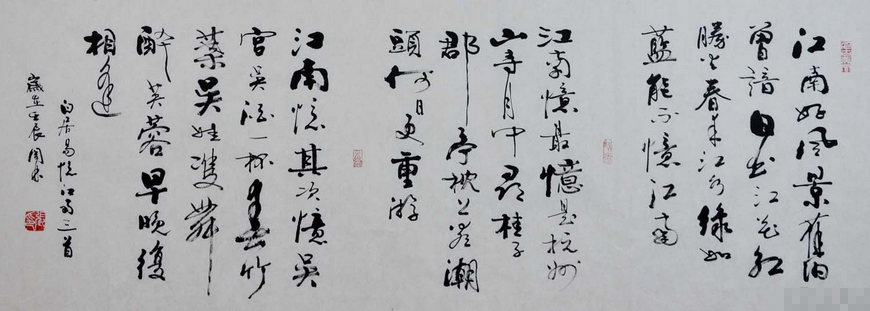 江南好风景舊
曾諳日出江花红
勝火春来江水绿如
藍能不憶江南
江南憶最憶是杭州
山寺月中尋桂子
郡亭枕上看潮
頭何日更重游
江南憶其次憶吴
宫吴酒一杯春竹
葉吴娃雙舞
醉芙蓉早晚復
相逢
白居易憶江南三首
歲在壬辰周